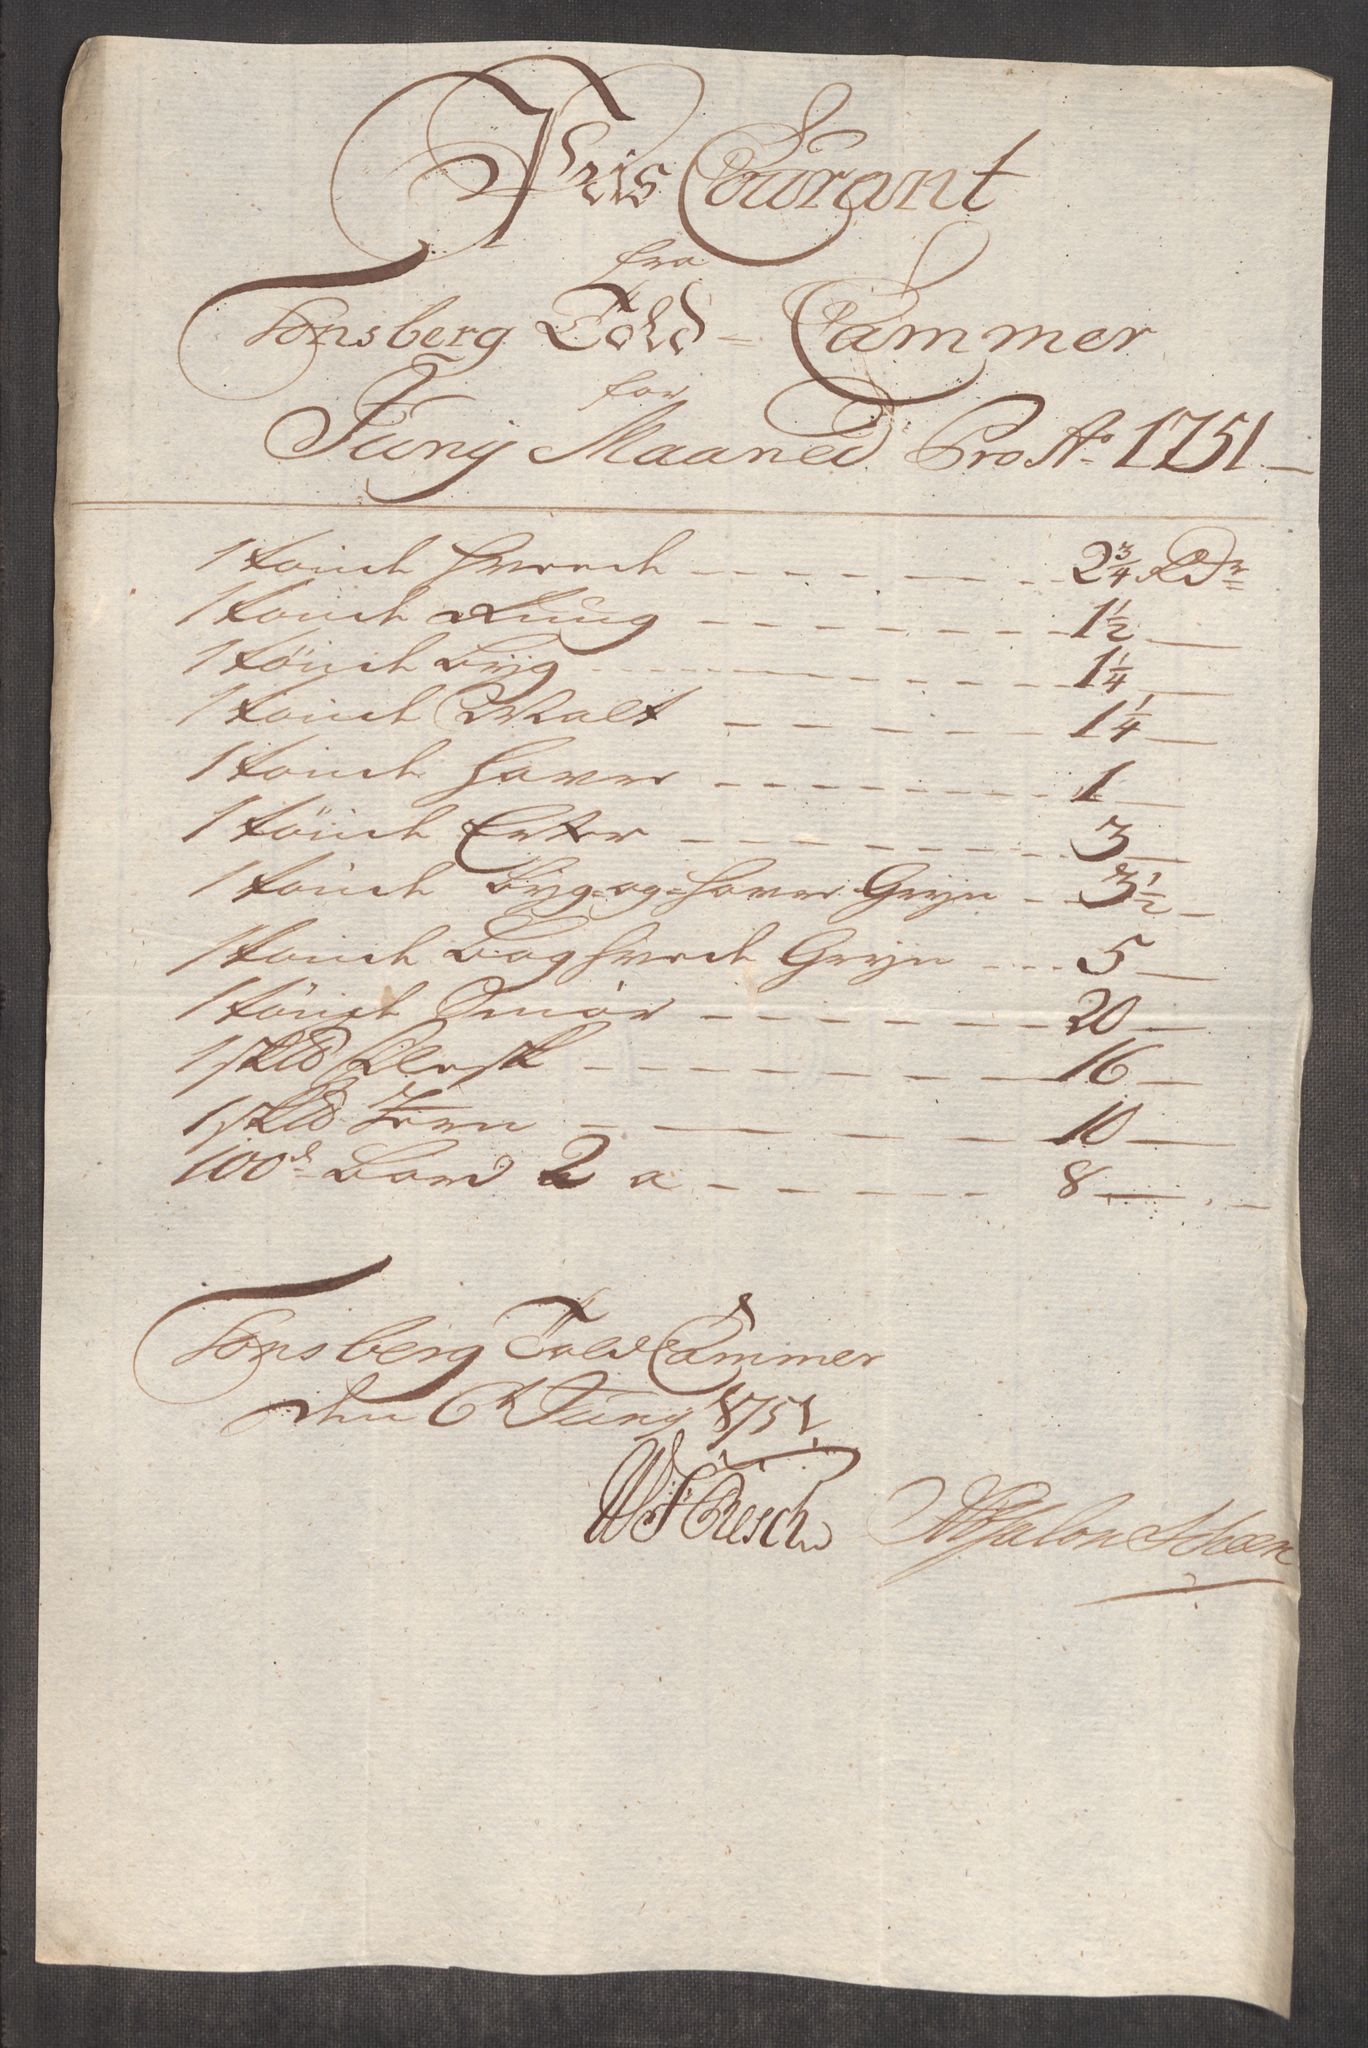 Pris Courant
fra
Tonsberg Told-Cammer
for
Junij Maaned Pro Ao 1751
1 tönde Hvede 2 3/4 Rdr
1 tönde Rug 1 1/2
1 tönde Byg 1 1/4
1 tönde Malt 1 1/4
1 tönde Havre 1
1 tönde Erter 3
1 tönde Byg-og-Havre Gryn 3 1/2
1 tönde Boghvede Gryn 5
1 tönde Smör 20
1 sk℔ Flesk 16
1 sk℔ Jern 10
100de Bord 2 a 8
Tonsberg Told Cammer
den 6t Junij 1751
Resch Absalon Steen